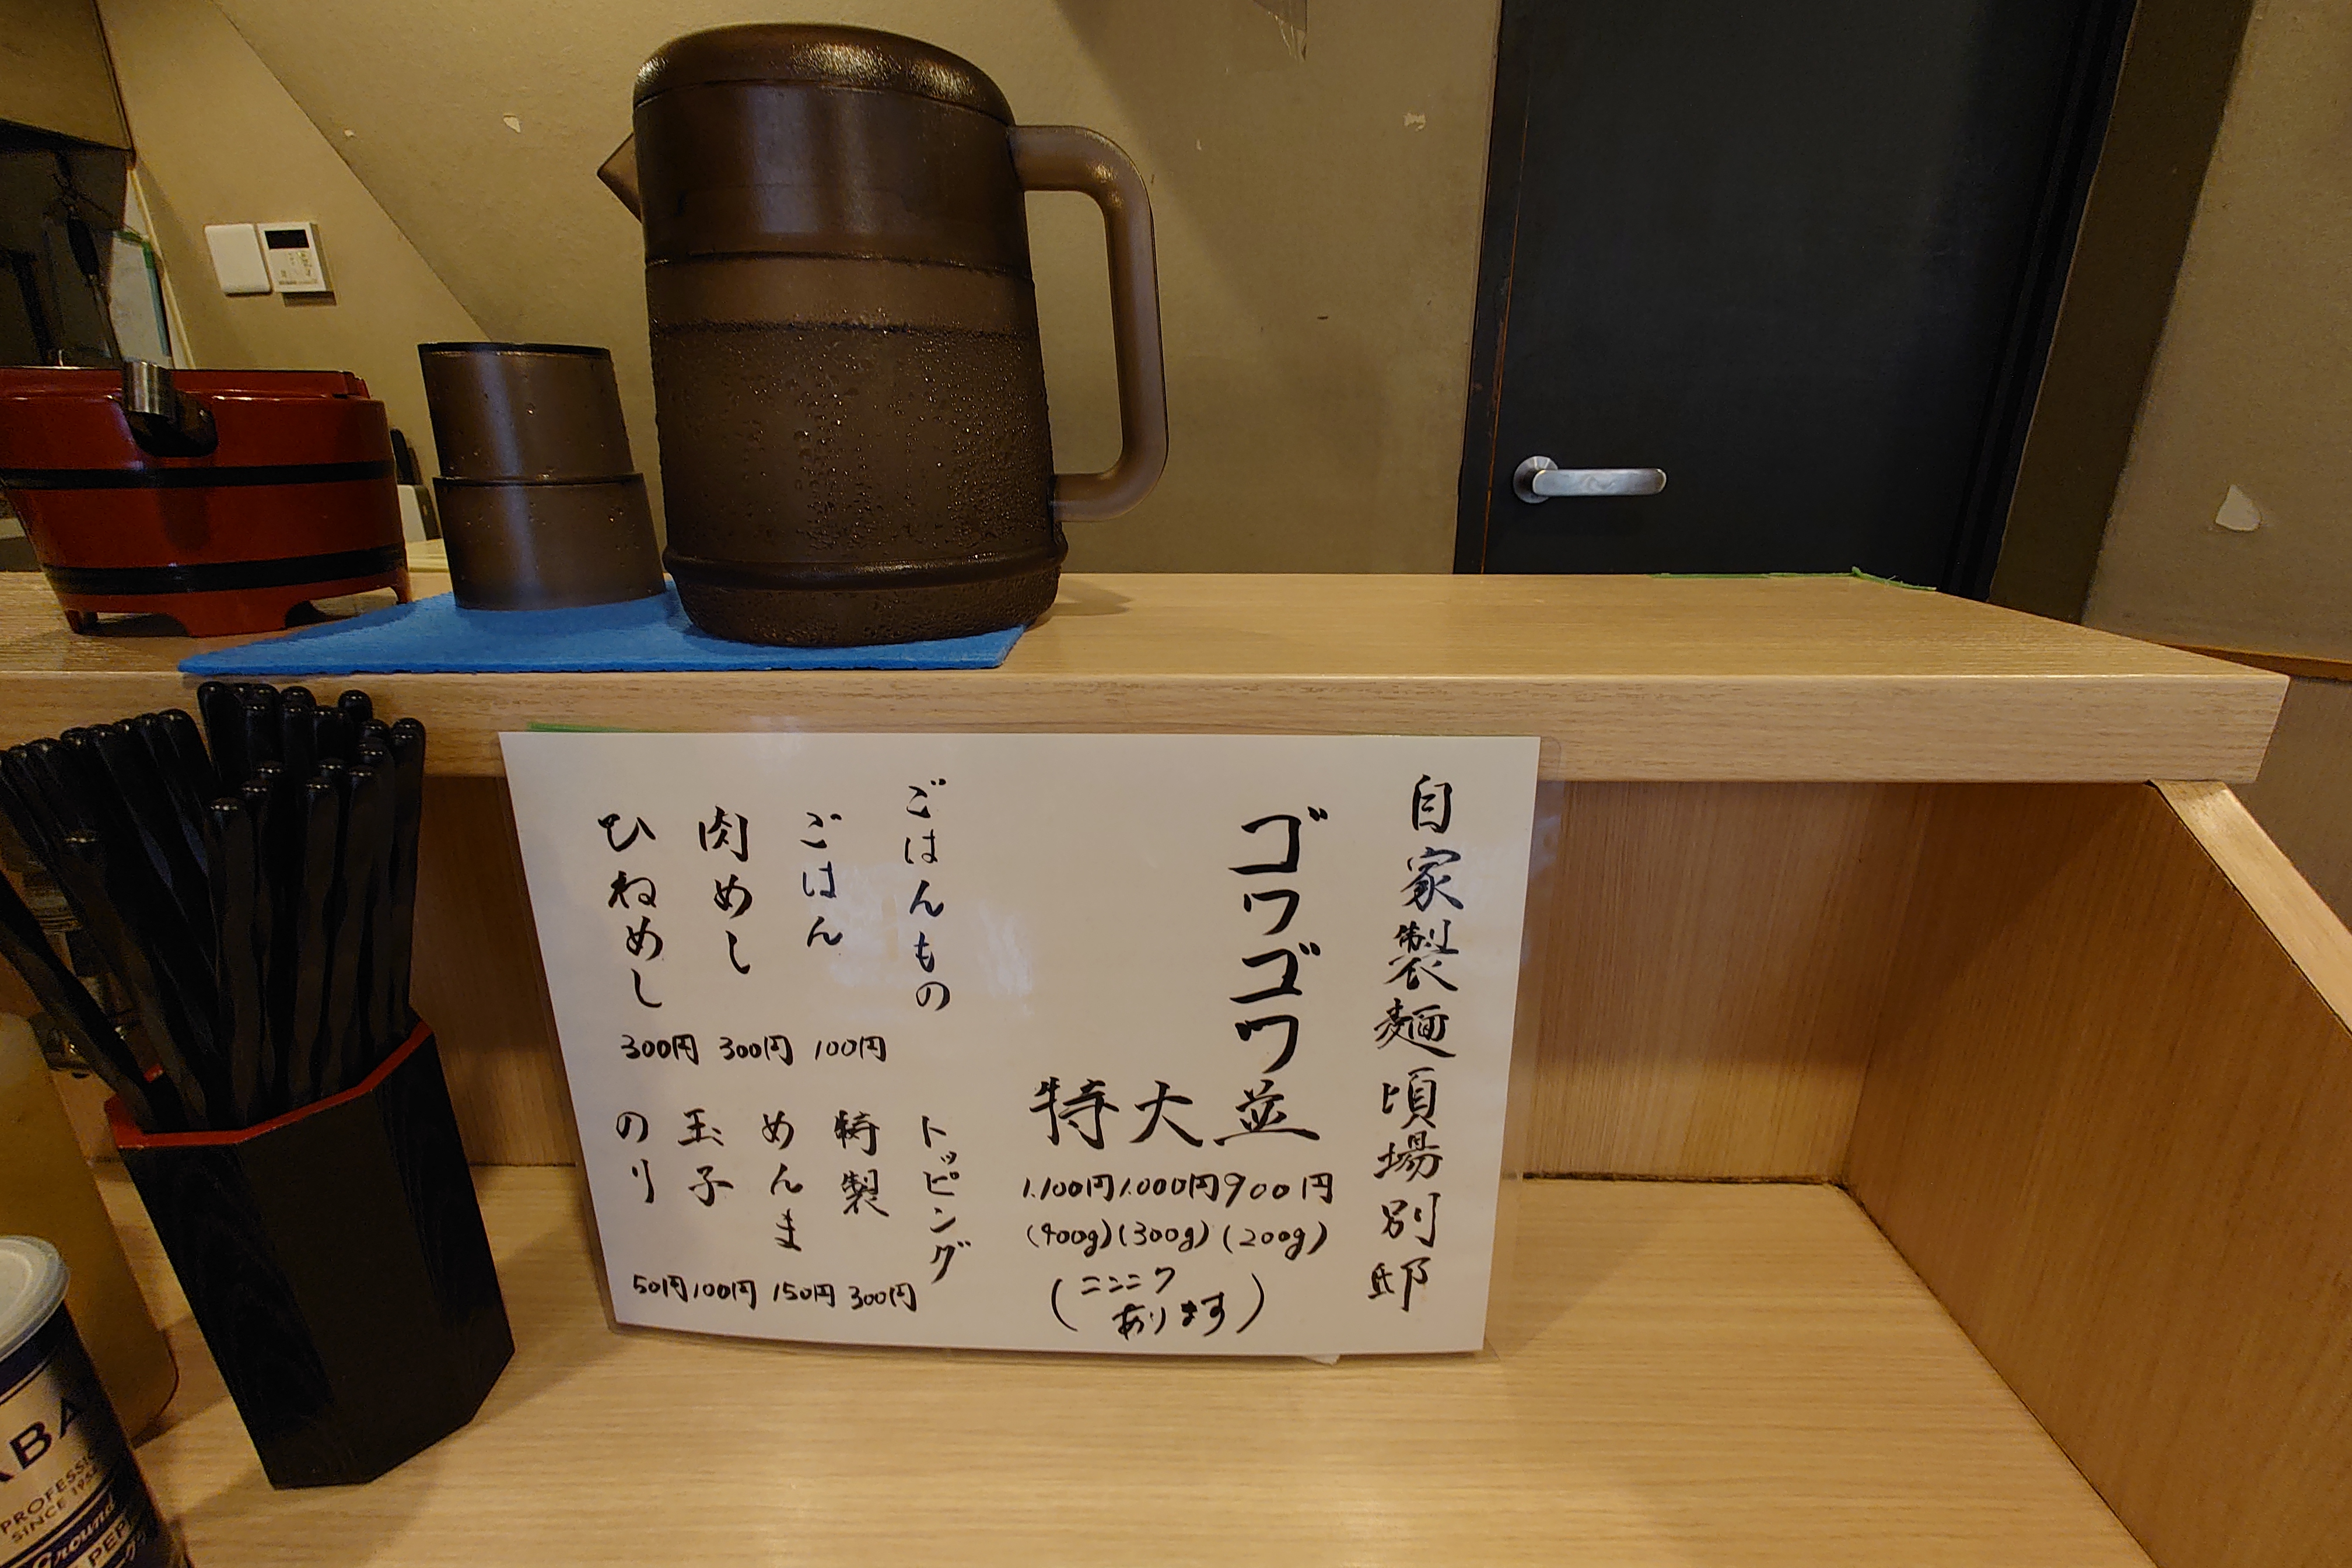 自家製麺 頃場別邸
ゴワゴワ
並 900円 (200g)
大 1.000円 (300g)
特 1.100円 (400g)
(ニンニクあります)
ごはんもの
ごはん 100円
肉めし 300円
ひねめし 300円
トッピング
特製 300円
めんま 150円
玉子 100円
のり 50円
ABA
PROFESSI
SINCE 195
Ground
PEPP